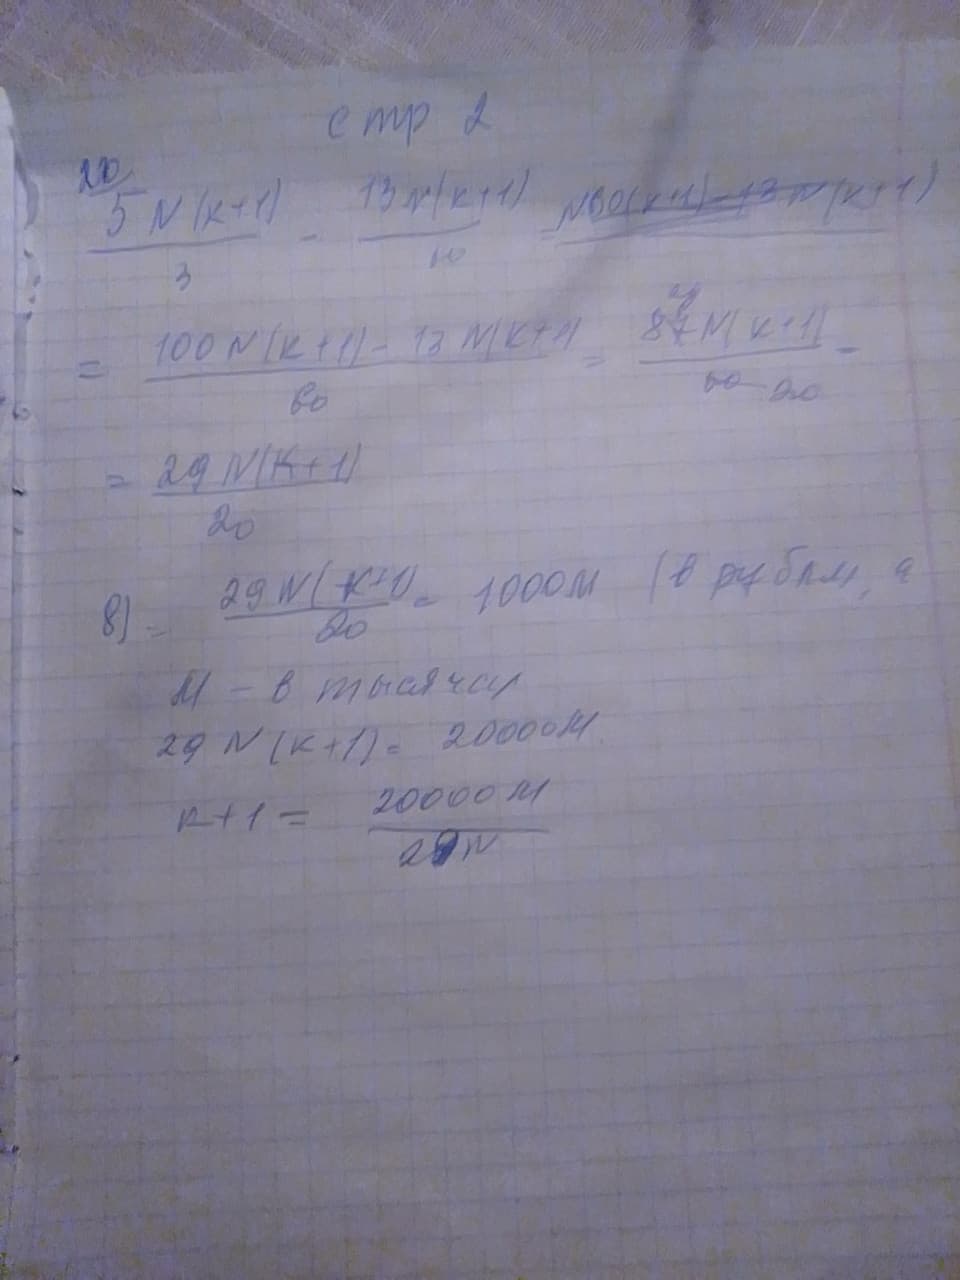 стр 2
20
5N(k+1)/3 - 13N(k+1)/60 =
= 100N(k+1) - 13N(k+1)/60 = 87N(k+1)/60 20 =
= 29N(k+1)/20
8) = 29N(k+1)/20 = 1000M (в рублях, а
M - в тысячах
29N(k+1) = 20000M
k+1 = 20000M/29N